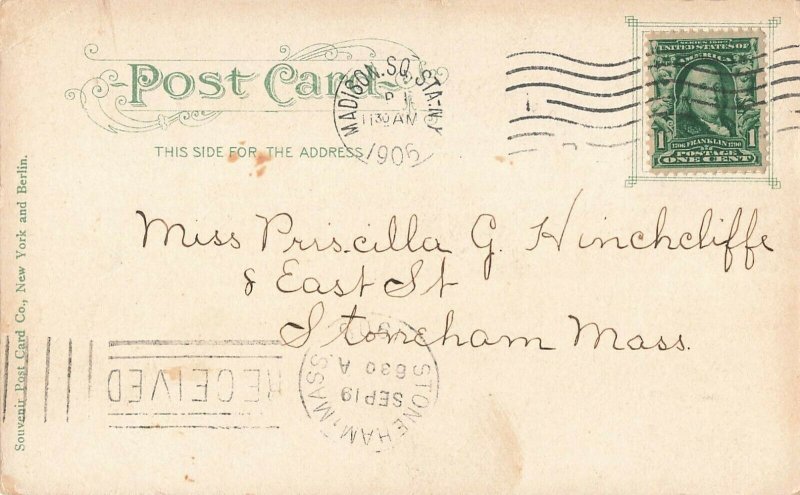 Post Card
THIS SIDE FOR THE ADDRESS
MADISON.SQ.STA.N.Y
11 30 AM
1905
SERIES 1902
UNITED STATES OF
AMERICA
1 1
1706 FRANKLIN 1790
POSTAGE
ONE CENT
Miss Priscilla G. Hinchcliffe
8 East St
Stoneham Mass.
RECEIVED
STONEHAM, MASS.
SEP 19
6 30 A
Souvenir Post Card Co., New York and Berlin.